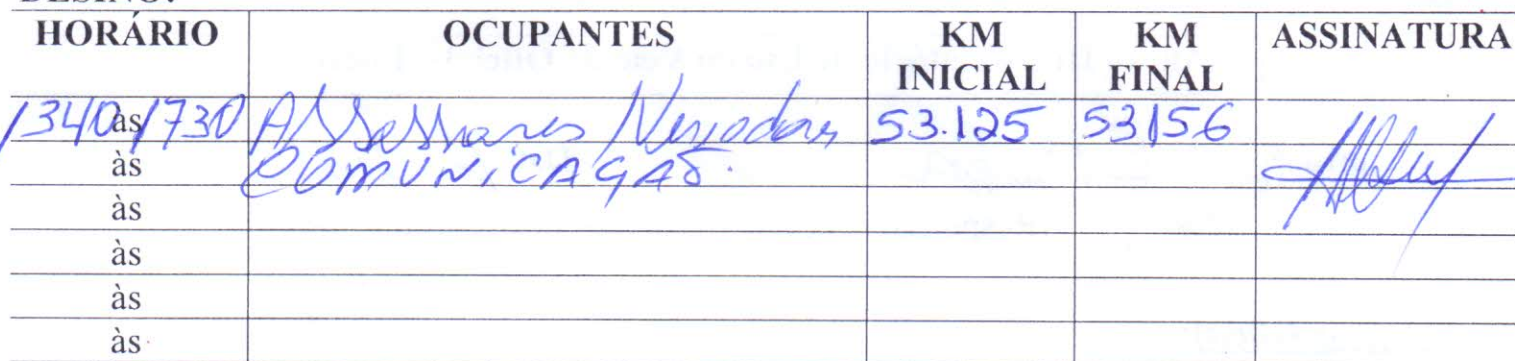 HORÁRIO OCUPANTES KM INICIAL KM FINAL ASSINATURA
1340 às 1730 Assessores 53.125 53156
às COMUNICAÇÃO.
às
às
às
às